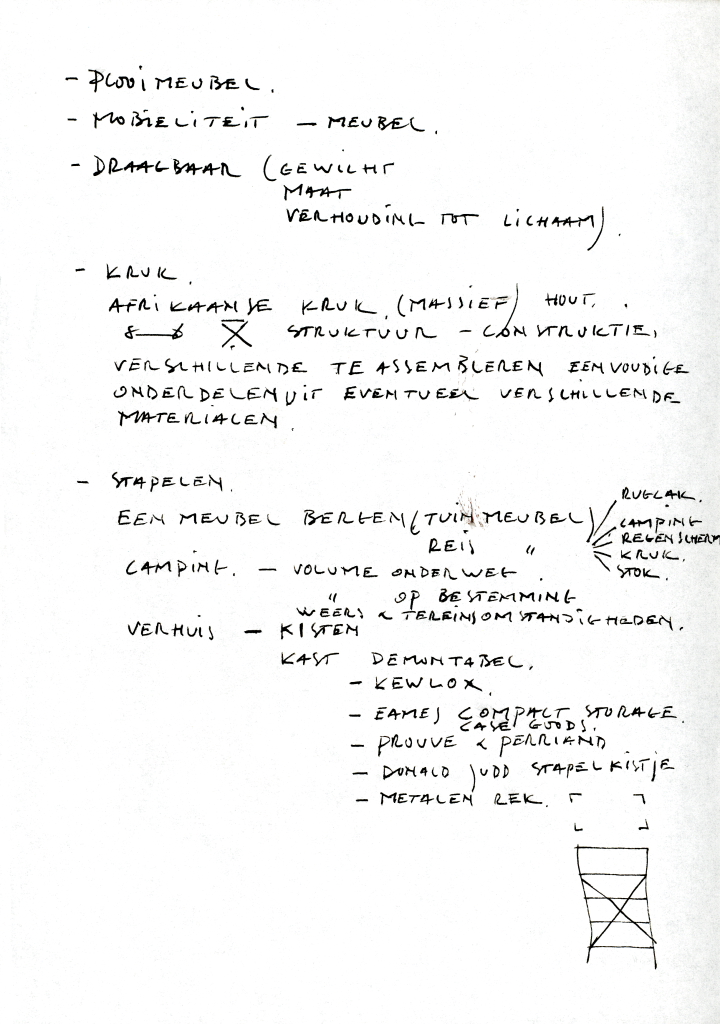 - PLOOIMEUBEL.
- MOBIELITEIT - MEUBEL.
- DRAAGBAAR (GEWICHT
MAAT
VERHOUDING TOT LICHAAM).
- KRUK.
AFRIKAANSE KRUK. (MASSIEF) HOUT.
STRUKTUUR - CONSTRUKTIE,
VERSCHILLENDE TE ASSEMBLEREN EENVOUDIGE
ONDERDELEN UIT EVENTUEEL VERSCHILLENDE
MATERIALEN.
- STAPELEN.
EEN MEUBEL BERGEN (TUINMEUBEL)
REIS "
RUGZAK.
CAMPING
REGENSCHERM
KRUK.
STOK.
CAMPING. - VOLUME ONDERWEG.
" OP BESTEMMING
WEERS & TEREINSOMSTANDIGHEDEN.
VERHUIS - KISTEN
KAST DEMONTABEL.
- KEWLOX.
- EAMES COMPACT STORAGE.
CASE GOODS.
- PROUVE & PERRIAND
- DONALD JUDD STAPELKISTJE
- METALEN REK.